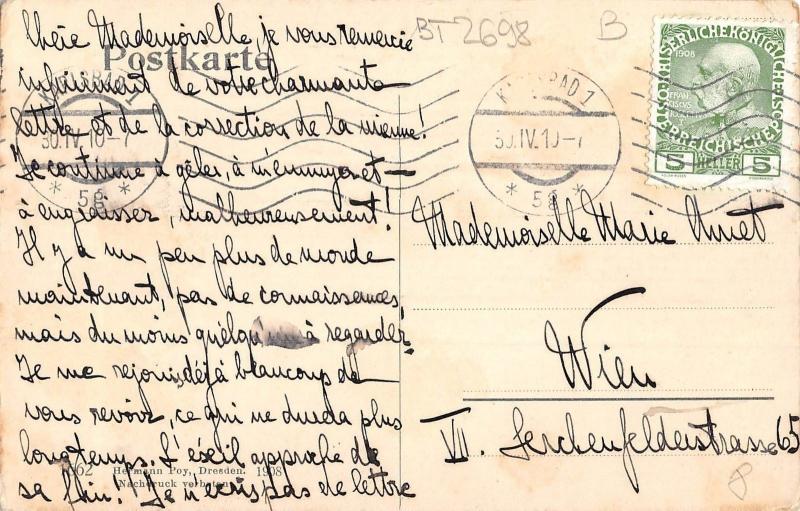 Chère Mademoiselle, je vous remercie
infiniment de votre charmante
lettre et de la correction de la mienne!
Je continue à gêler, à m'ennuyer et —
à engraisser, malheureusement!
Il y a un peu plus de monde
maintenant, pas de connaissances,
mais du moins quélqu'un à regarder.
Je me rejouis déjà beaucoup de
vous revoir, ce qui ne durera plus
longtemps. L'éxeil approche de
sa fin! Je n'écris pas de lettre
Postkarte
BT2698
B
KARLSBAD 1
30.IV.10-7
* 5g *
KARLSBAD 1
30.IV.10-7
* 5g *
KAISERLICHE KÖNIGLICHE
ÖSTERREICHISCHE POST
1908
5 HELLER 5
Mademoiselle Marie Amet
Wien
VII. Lerchenfelderstrasse 65
Hermann Poy, Dresden. 1908
Nachdruck verboten